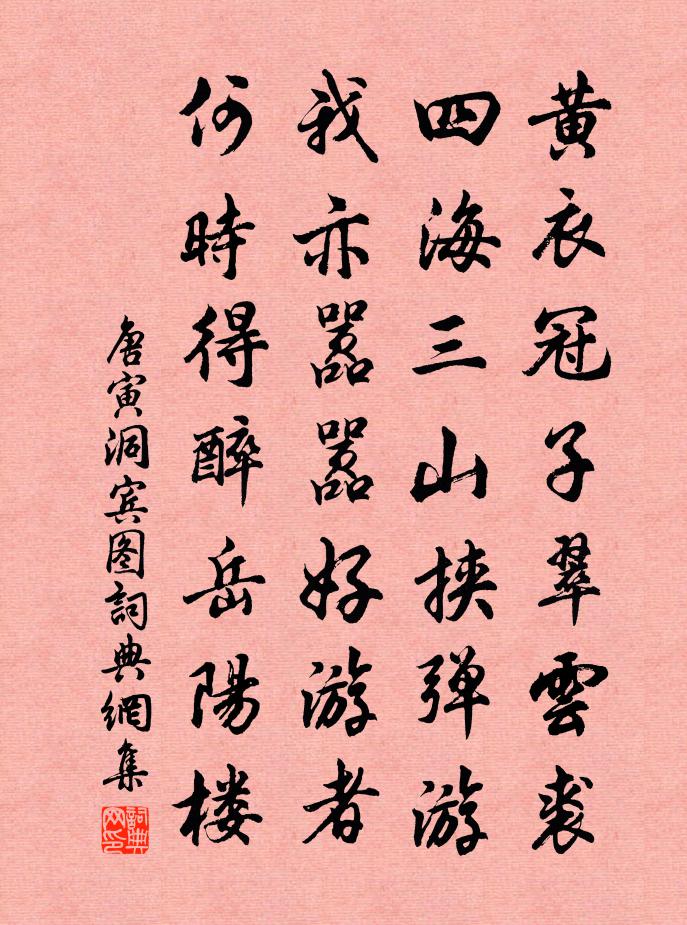 黄衣冠子翠雲裘
四海三山挾弹游
我亦嚣嚣好游者
何時得醉岳陽楼
唐寅洞宾图詞典網集
詞典网印